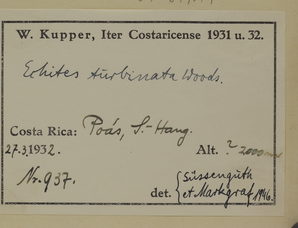 W. Kupper, Iter Costaricense 1931 u. 32.
Echites turbinata Woods.
Costa Rica: Poás, S.-Hang.
27.3.1932. Alt. ? 2000 m
Nr. 937.
det. { Süssenguth
et Markgraf 1946.